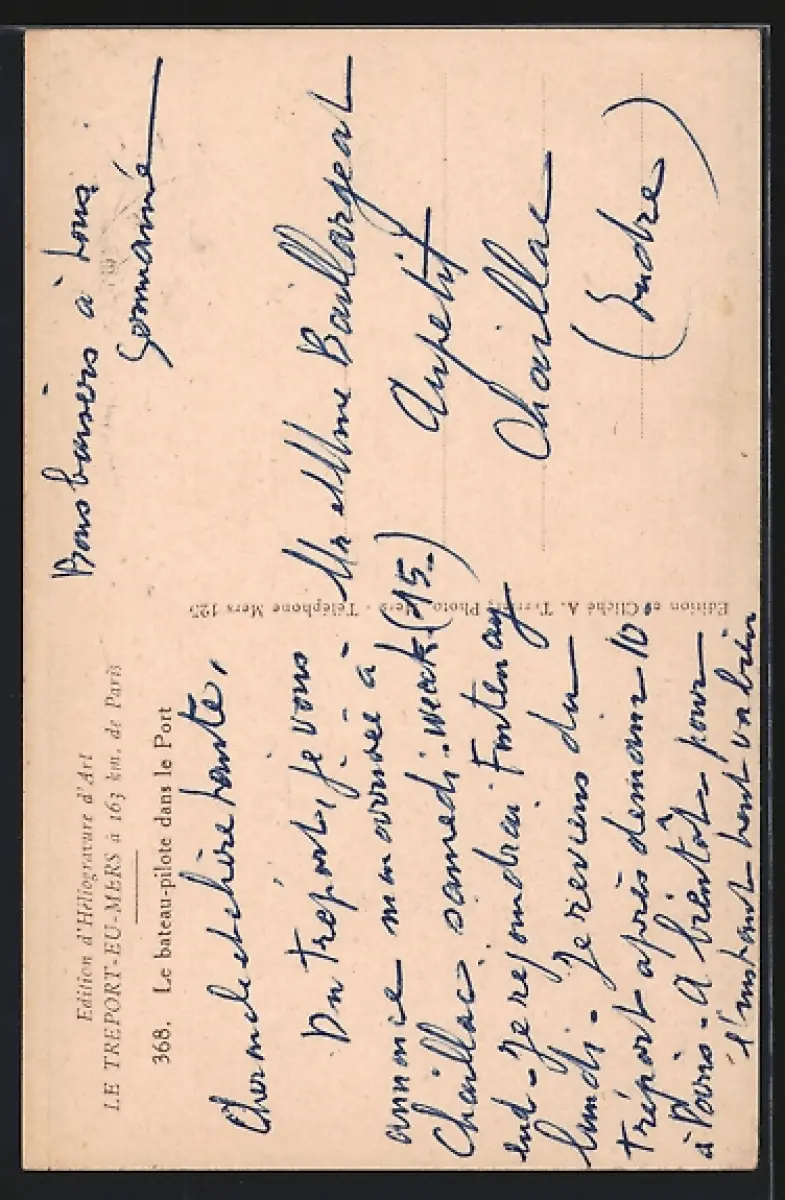 Edition d'Héliogravure d'Art
LE TREPORT-EU-MERS à 163 km. de Paris
368. Le bateau-pilote dans le Port
Cher oncle et chère tante,
Du Tréport, je vous
annonce mon arrivée à
Chaillac samedi. week (15.)
end - Je rejoindrai Fontenay
lundi - Je reviens du
Tréport après demain 10
à Paris - A bientôt - pour
l'instant tout va bien
Bons baisers à tous
Edition et Cliché A. Photo, Mers - Téléphone Mers 125
Mr et Mme Baillargeat
Aupetit
Chaillac
(Indre)